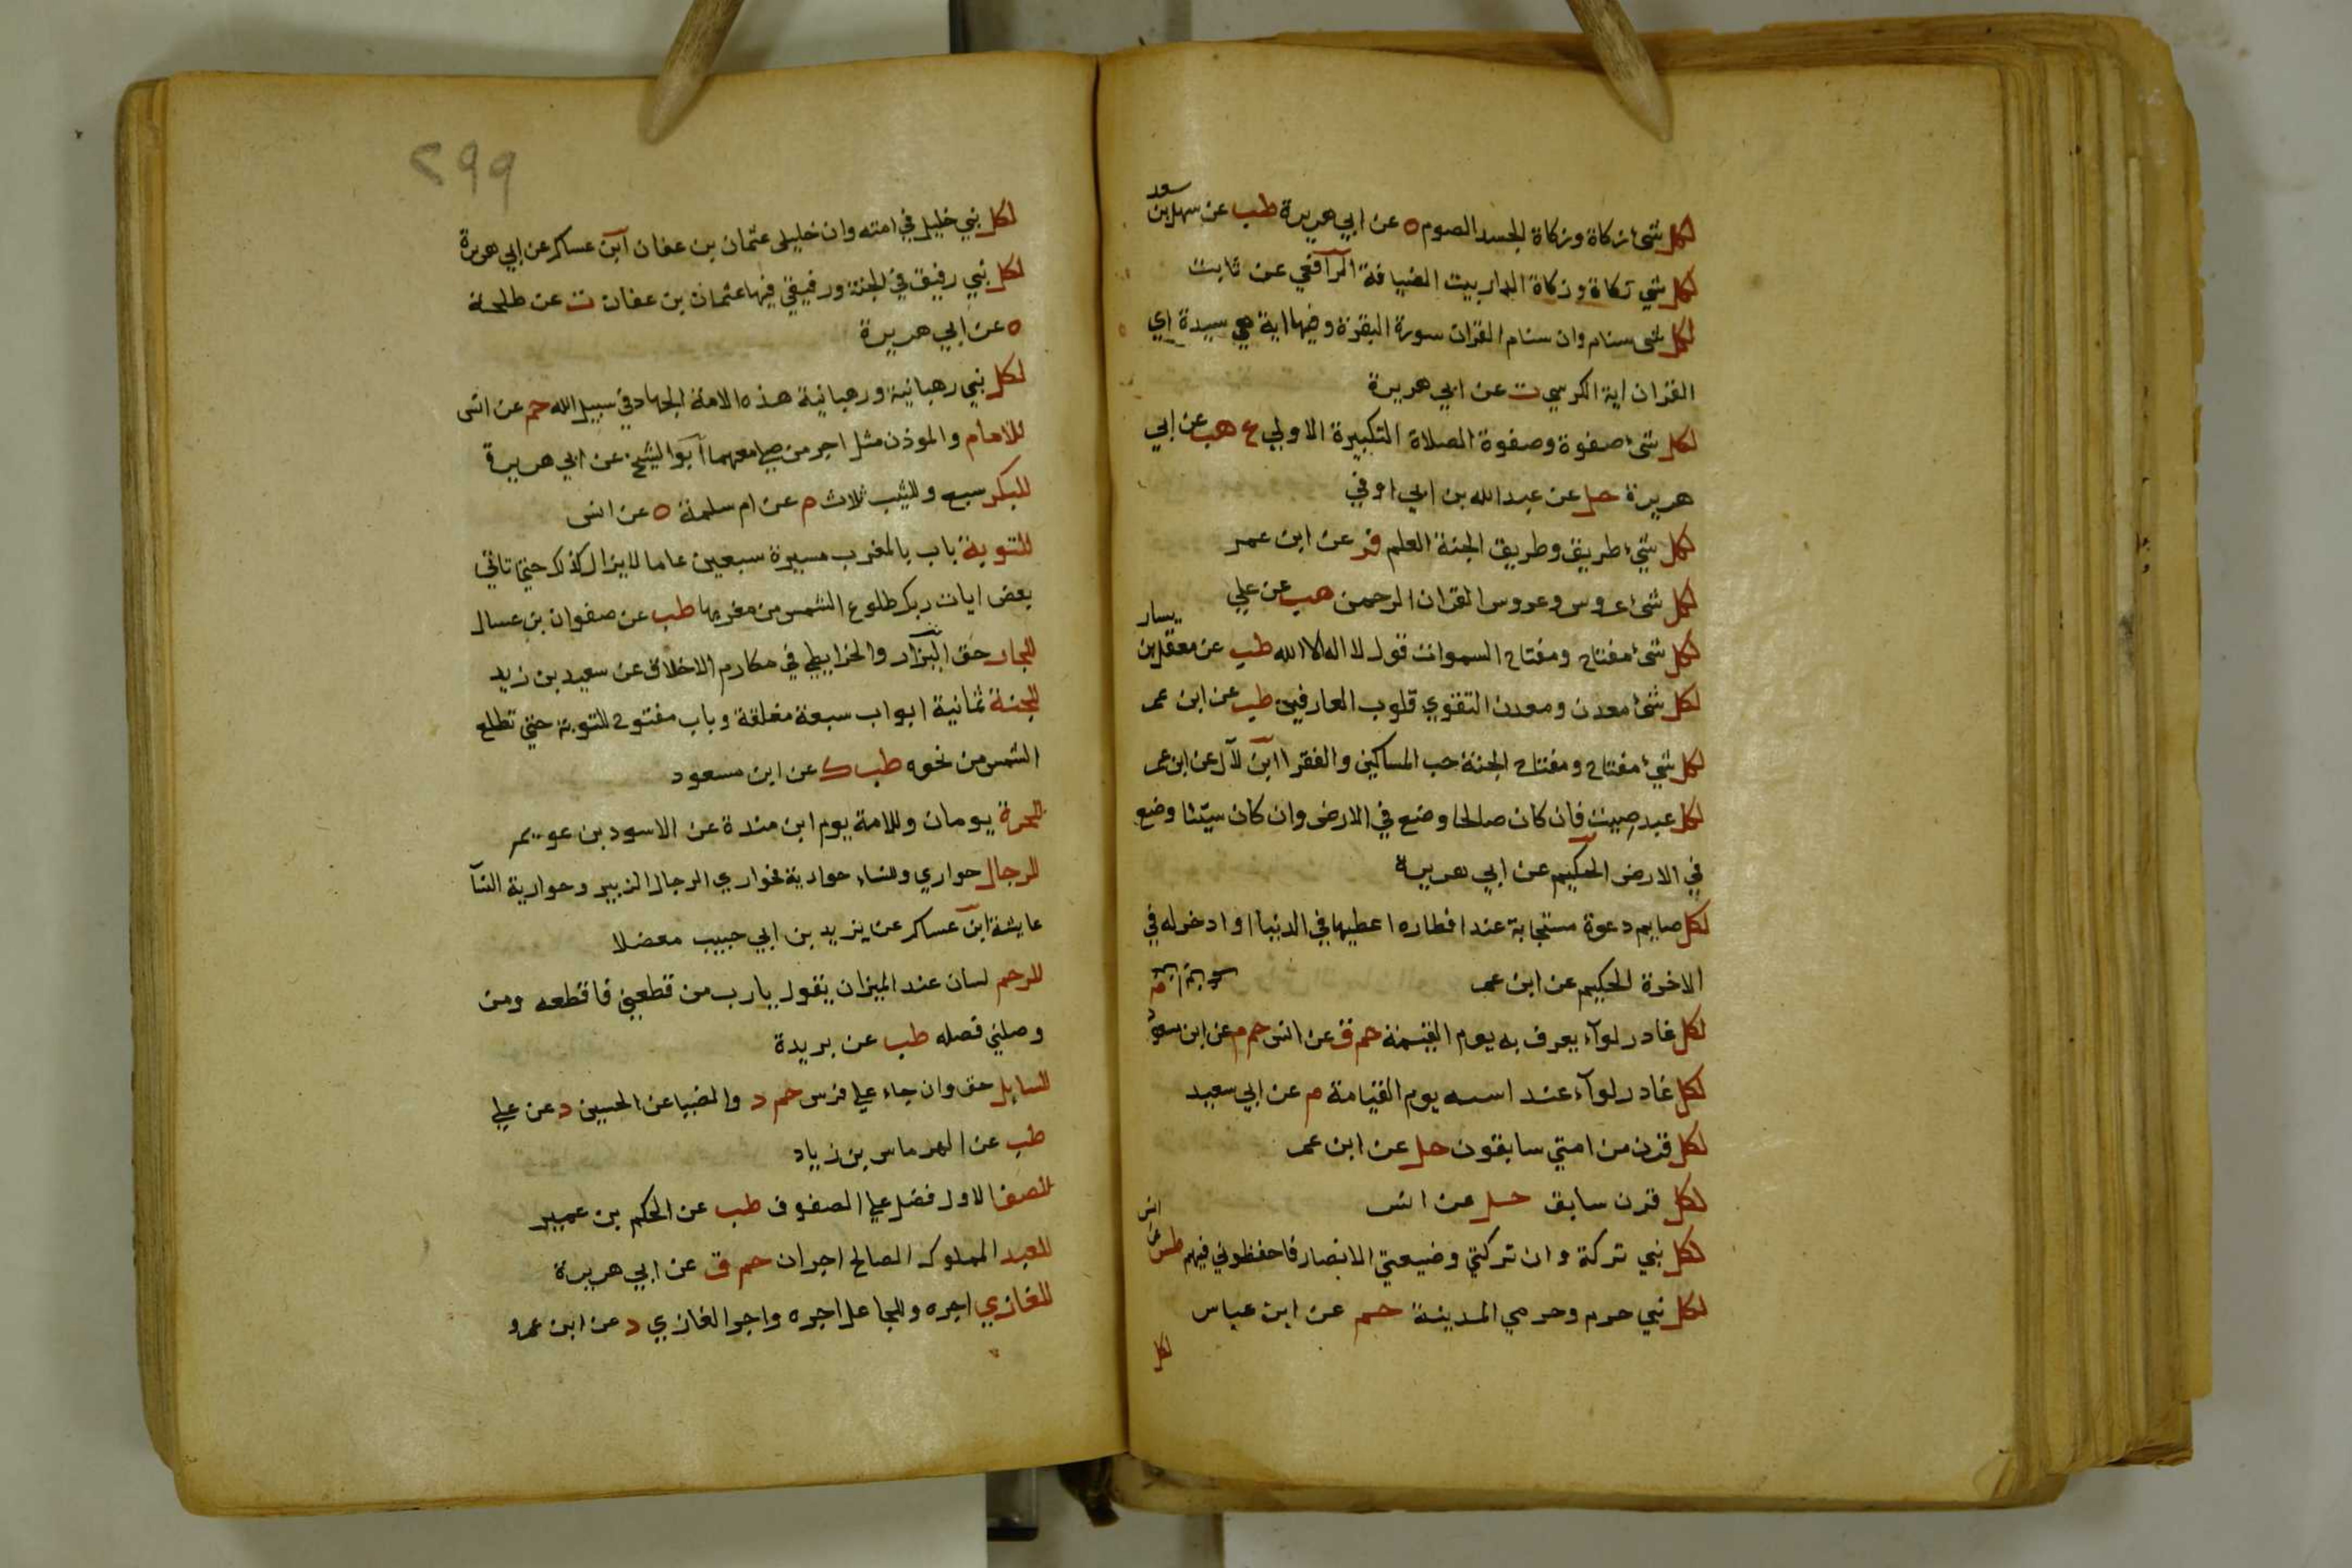 لكل شئ زكاة وزكاة الجسد الصوم ه عن ابي هريرة طب عن سهل بن سعد
لكل شي زكاة وزكاة الدار بيت الضيافة الرافعي عن ثابت
لكل شى سنام وان سنام القران سورة البقرة وفيها اية هي سيدة اي
القران اية الكرسي ت عن ابي هريرة
لكل شئ صفوة وصفوة الصلاة التكبيرة الاولي ع هب عن ابي
هريرة حل عن عبد الله بن ابي اوفي
لكل شئ طريق وطريق الجنة العلم فر عن ابن عمر
لكل شئ عروس وعروس القران الرحمن هب عن علي
لكل شئ مفتاح ومفتاح السموات قول لا اله الا الله طب عن معقل بن يسار
لكل شئ معدن ومعدن التقوي قلوب العارفين طب عن ابن عمر
لكل شئ مفتاح ومفتاح الجنة حب المساكين والفقرا ابن لال عن ابن عمر
لكل عبد صيت فان كان صالحا وضع في الارض وان كان سيئا وضع
في الارض الحكيم عن ابي هريرة
لكل صايم دعوة مستجابة عند افطاره اعطيها في الدنيا او ادخر له في
الاخرة الحكيم عن ابن عمر
لكل غادر لوآء يعرف به يوم القيمة حم ق عن انس حم م عن ابن مسعود
لكل غادر لوآء عند استه يوم القيامة م عن ابي سعيد
لكل قرن من امتي سابقون حل عن ابن عمر
لكل قرن سابق حل عن انس
لكل نبي تركة وان تركتي وضيعتي الانصار فاحفظوني فيهم طس عن انس
لكل نبي حرم وحرمي المدينة حم عن ابن عباس
لكل
٢٩٩
لكل نبي خليل في امته وان خليلى عثمان بن عفان ابن عساكر عن ابي هريرة
لكل نبي رفيق في الجنة ورفيقي فيها عثمان بن عفان ت عن طلحة
ه عن ابي هريرة
لكل نبي رهبانية ورهبانية هذه الامة الجهاد في سبيل الله حم عن انس
للامام والموذن مثل اجر من صلي معهما ابو الشيخ عن ابي هريرة
للبكر سبع وللثيب ثلاث م عن ام سلمة ه عن انس
للتوبة باب بالمغرب مسيرة سبعين عاما لا يزال كذلك حتى تاتي
بعض ايات ربك طلوع الشمس من مغربها طب عن صفوان بن عسال
للجار حق البزار والخرايطي في مكارم الاخلاق عن سعيد بن زيد
للجنة ثمانية ابواب سبعة مغلقة وباب مفتوح للتوبة حتي تطلع
الشمس من نحوه طب ك عن ابن مسعود
للحرة يومان وللامة يوم ابن مندة عن الاسود بن عويمر
للرجال حواري وللنساء حوارية فحواري الرجال الزبير وحوارية النسآ
عايشة ابن عساكر عن يزيد بن ابي حبيب معضلا
للرحم لسان عند الميزان يقول يارب من قطعني فاقطعه ومن
وصلني فصله طب عن بريدة
للسايل حق وان جاء علي فرس حم د والضيا عن الحسين د عن علي
طب عن الهرماس بن زياد
للصف الاول فضل علي الصفوف طب عن الحكم بن عمير
للعبد المملوك الصالح اجران حم ق عن ابي هريرة
للغازي اجره وللجاعل اجره واجر الغازي د عن ابن عمرو